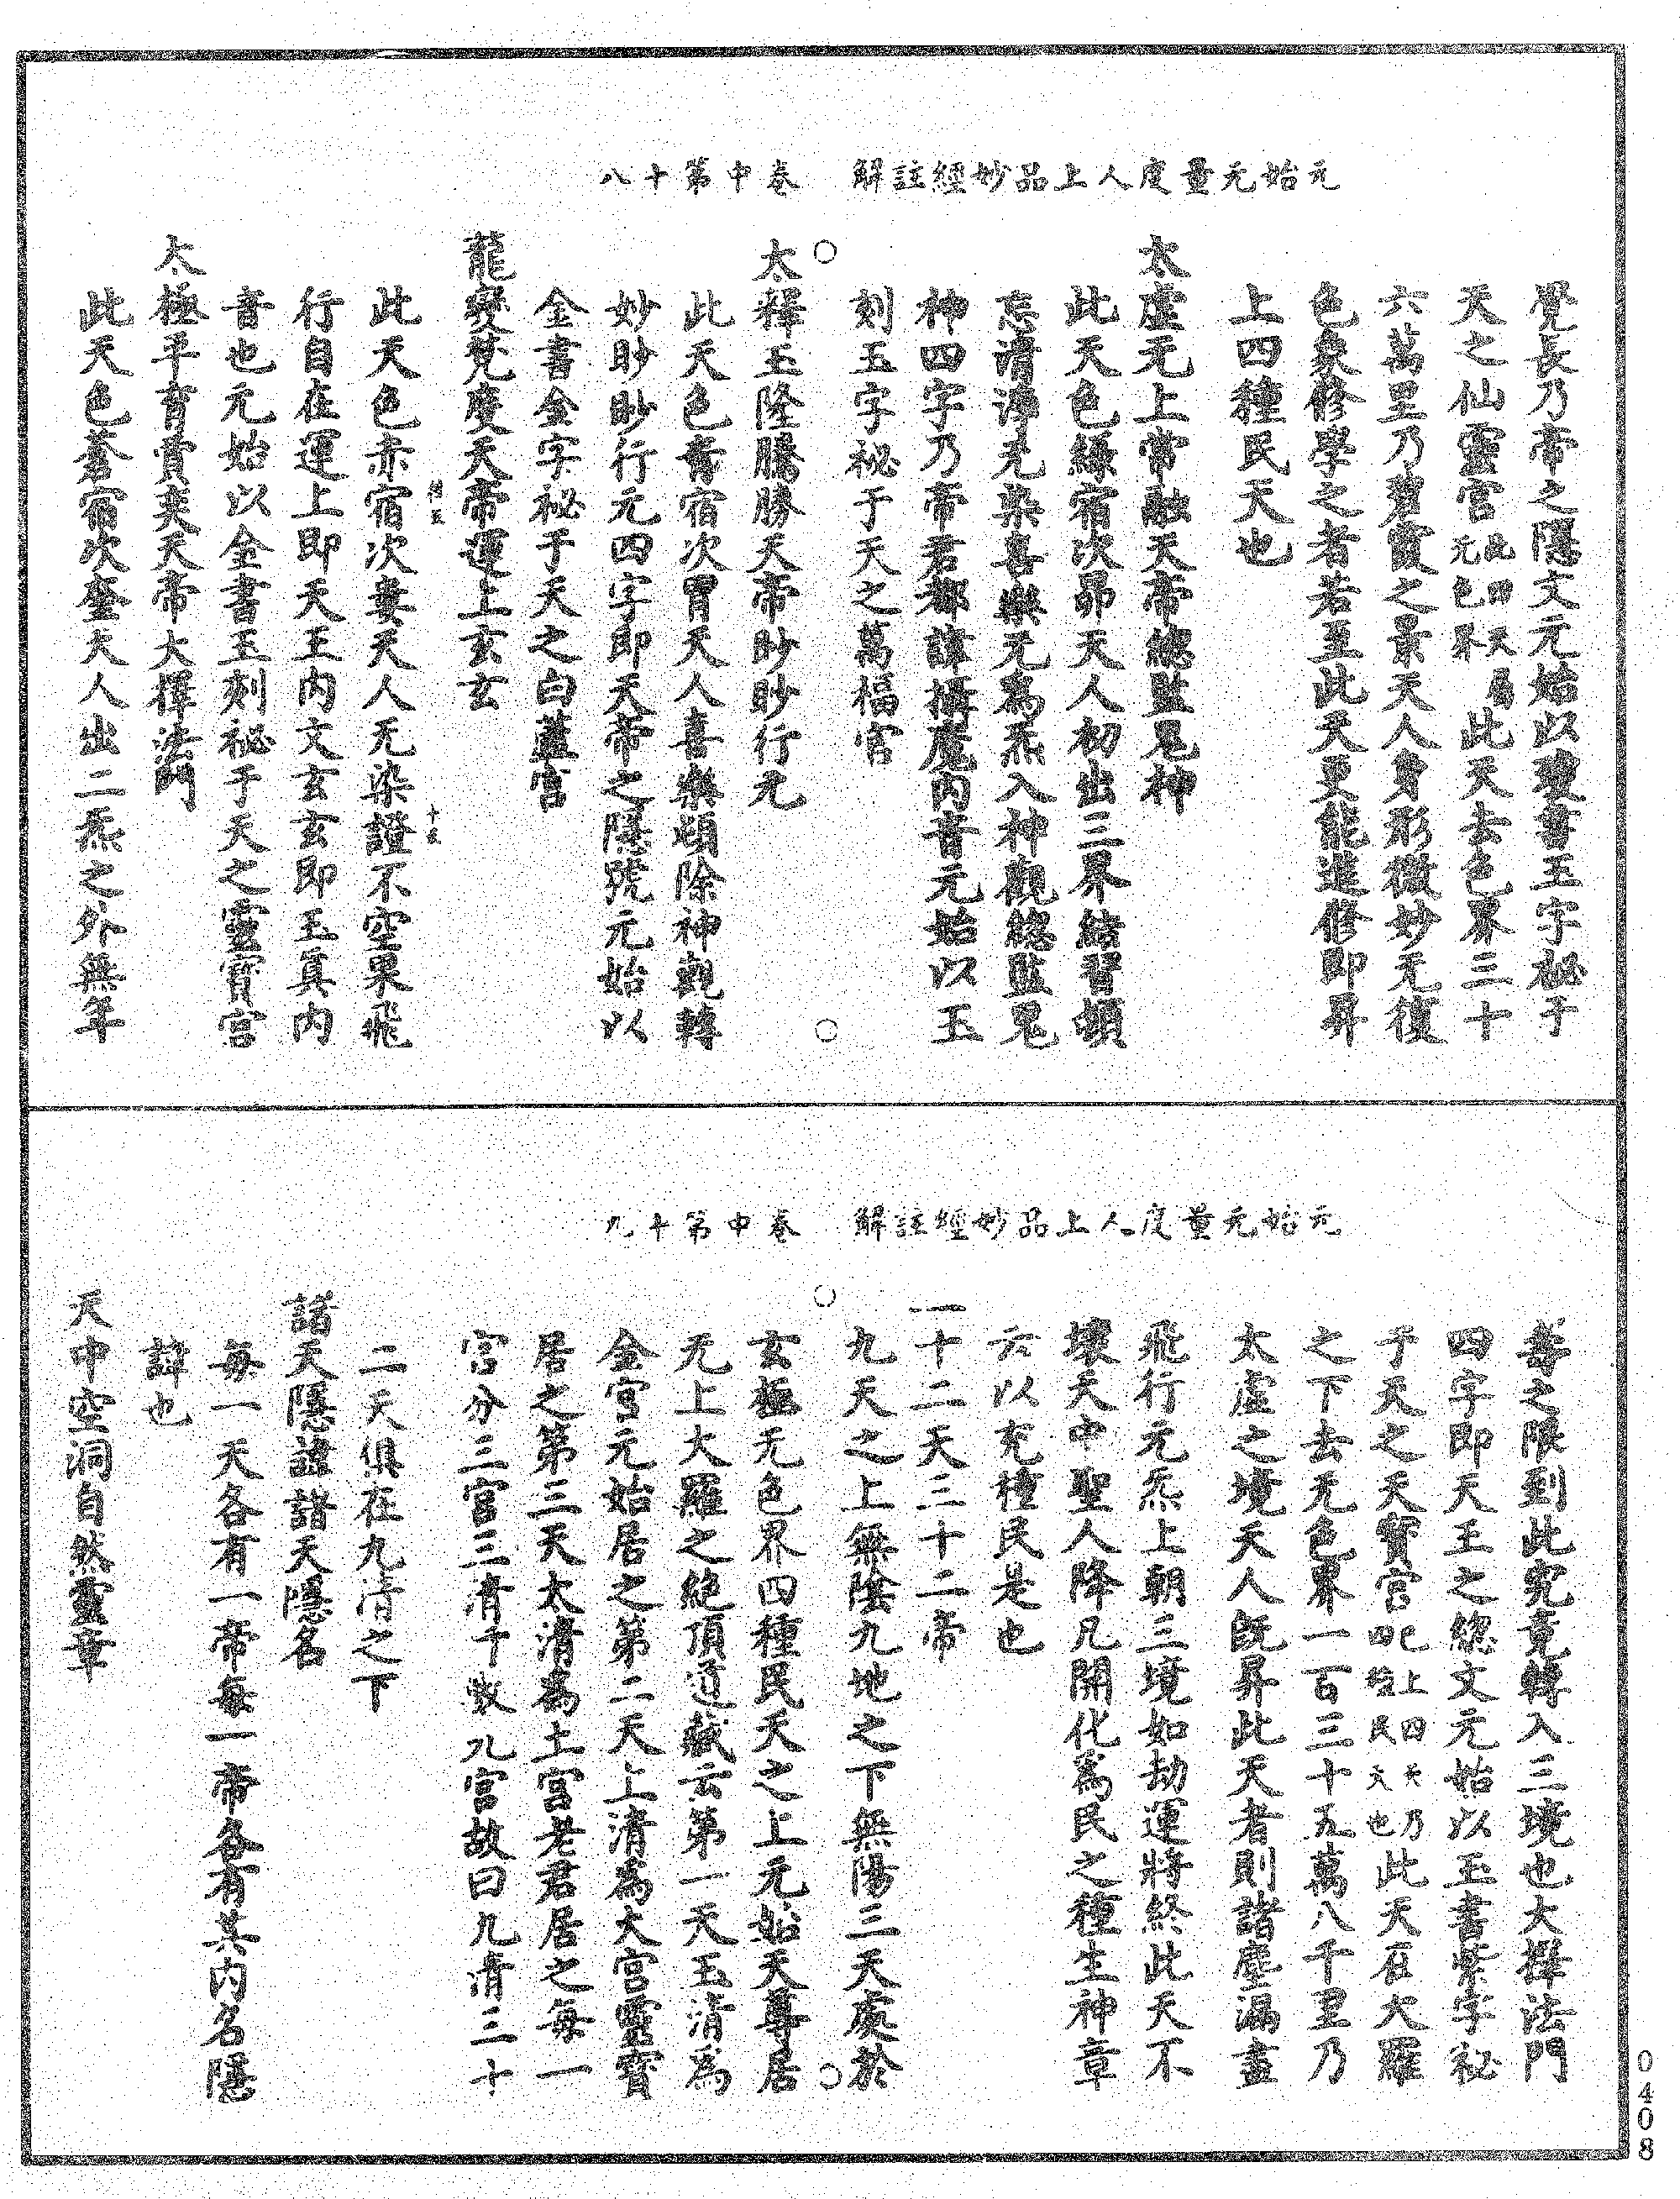 元始元量度人上品妙經註解 卷中第十八
覺長乃帝之隱文元始以瓊書玉字祕于
天之仙靈官此四天屬元色界此天去色界三十
六萬里乃碧霞之景天人身形微妙无復
色象修學之者若至此天更能進修即昇
上四種民天也
太虛无上常融天帝總監鬼神
此天色綠宿次昴天人初出三界結習頓
忘清淨无染喜樂无為炁入神觀總監鬼
神四字乃帝君都諱攝魔內音元始以玉
刻玉字祕于天之萬福官
太釋玉隆騰勝天帝眇眇行元
此天色青宿次胃天人喜樂頓除神觀轉
妙眇眇行元四字即天帝之隱號元始以
金書金字祕于天之白蓮宮
龍變梵度天帝運上玄玄
此天色赤宿次婁天人无染證不空果飛
行自在運上即天王內文玄玄即玉真內
音也元始以金書玉刻祕于天之靈寶宮
太極平育賈奕天帝大擇法門
此天色蒼宿次奎天人出二炁之外無年
元始元量度人上品妙經註解 卷中第十九
壽之限到此究竟轉入三境也大擇法門
四字即天王之總文元始以玉書紫字祕
于天之天寶官已上四天乃四種民天也此天在大羅
之下去无色界一百三十五萬八千里乃
太虛之境天人既昇此天者則諸塵漏盡
飛行元炁上朝三境如劫運將終此天不
壞天中聖人降凡開化為民之種生神章
云以充種民是也
三十二天三十二帝
九天之上無陰九地之下無陽三天處於
玄極无色界四種民天之上元始天尊居
无上大羅之絕頂道藏云第一天玉清為
金宮元始居之第二天上清為木宮靈寶
居之第三天太清為土宮老君居之每一
宮分三宮三清十數九宮故曰九清三十
二天俱在九清之下
諸天隱諱諸天隱名
每一天各有一帝每一帝各有其內名隱
諱也
天中空洞自然靈章
0408